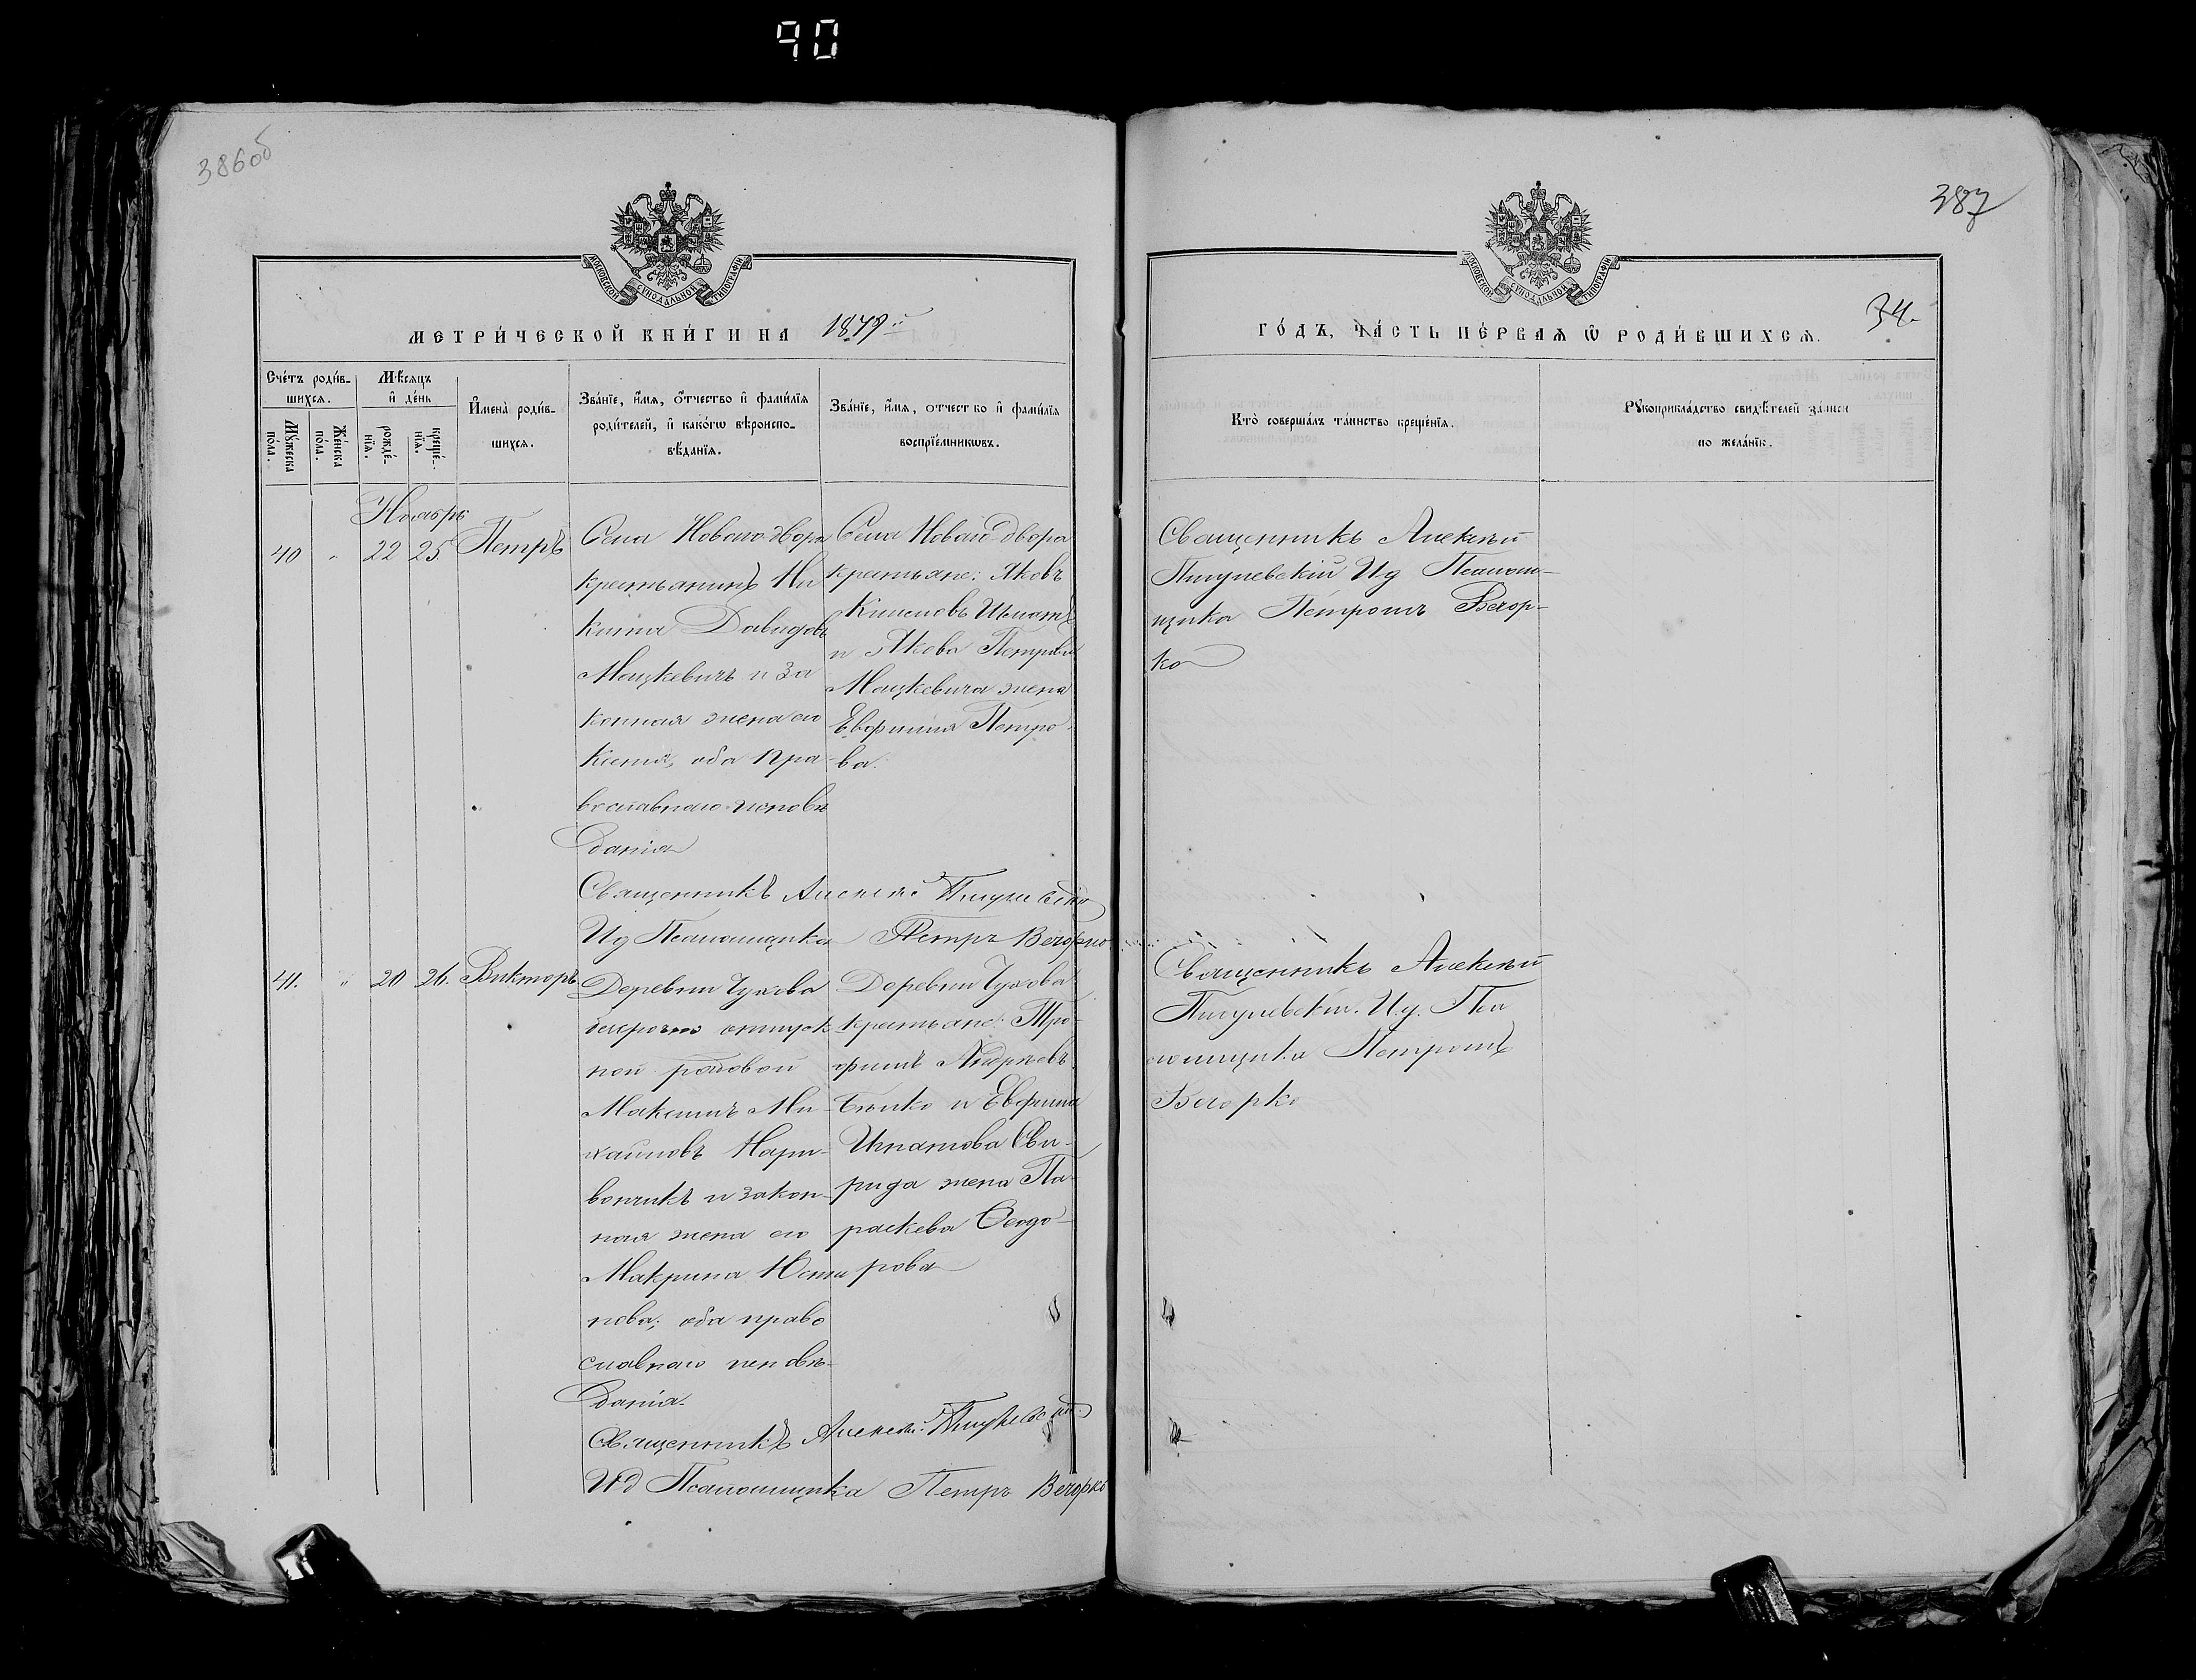 90
386об
387
МОСКОВСКОЙ СѴНОДАЛЬНОЙ ТИПОГРАФІИ
МОСКОВСКОЙ СѴНОДАЛЬНОЙ ТИПОГРАФІИ
МЕТРИ́ЧЕСКОЙ КНИ́ГИ НА 1879й
ГО́ДЪ, ЧА́СТЬ ПЕ́РВАЯ Ѡ РОДИ́ВШИХСЯ.
34.
Сче́тъ роди́в-
шихся.
Мꙋ́жеска
по́ла.
Же́нска
по́ла.
Мѣ́сяцъ
и де́нь
рожде́-
нїя.
креще́-
нїя.
Имена̀ роди́в-
шихся.
Зва́нїе, и́мя, о́тчество и фами́лїя
роди́телей, и како́гѡ вѣроиспо-
вѣ́данїя.
Зва́нїе, и́мя, отчество и фами́лїя
воспрїе́мникѡвъ.
Кто̀ соверша́лъ та́инство креще́нїя.
Рꙋкоприкла́дство свидѣ́телей за́писи
по жела́нїю.
Ноябрь
40 " 22 25 Петръ
Села Новаго-двора
крестьянинъ Ни
кита Давидовъ
Мацкевичъ и за
конная жена его
Ксенія, оба пра
вославнаго исповѣ
данія
Села Новаго-двора
крестьяне: Яковъ
и Якова Петрова
Мацкевича жена
Евфимія Петро-
ва.
Священникъ Алексій
Пигулевскій Ид Псалом-
щика Петромъ Вечор-
ко
Священникъ Алексѣй Пигулевскій
Ид Псаломщика Петръ Вечорко
41. " 20 26. Викторъ
Деревни Чухова
безсрочно отпуск
ной рядовой
Максимъ Ми-
хаиловъ
и закон-
ная жена его
Макрина Юсти
нова; оба право
славнаго исповѣ-
данія.
Деревни Чухова
крестьяне: Тро-
фимъ Андреевъ
и Евфима
Игнатова Сви-
рида жена Па-
раскева Ѳеодо-
рова
Священникъ Алексѣй
Пигулевскій. И.д. Пса
ломщика Петромъ
Вечорко
Священникъ Алексѣй Пигулевскій
Ид Псаломщика Петръ Вечорко